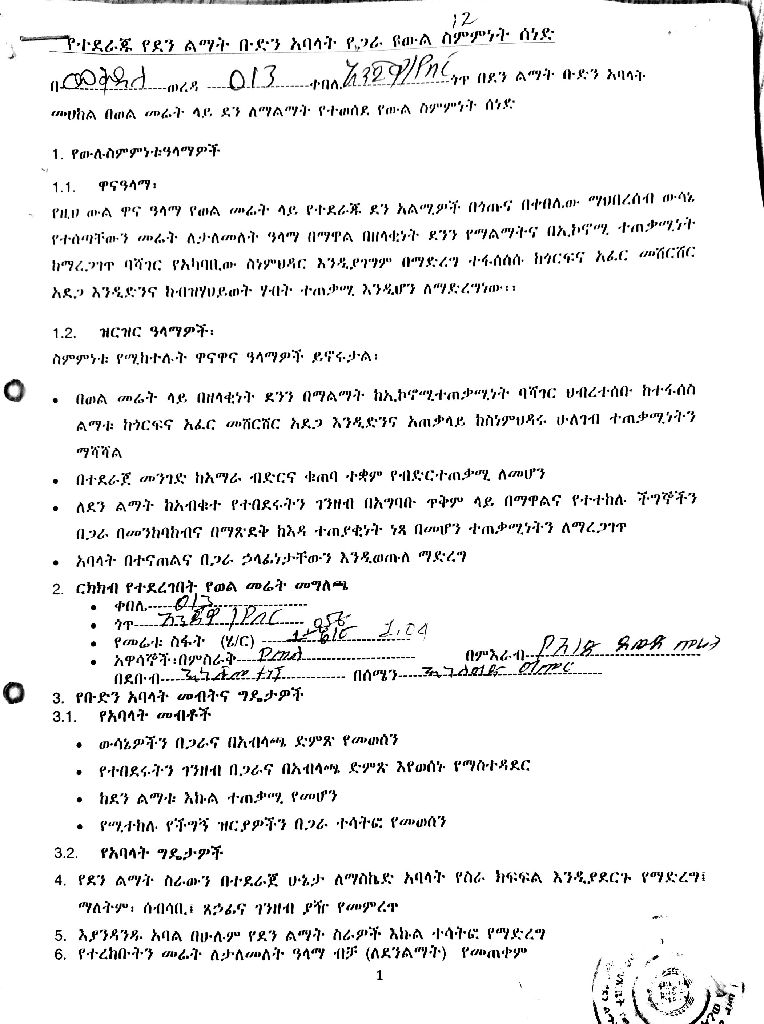 12
የተደራጁ የደን ልማት ቡድን አባላት የጋራ የውል ስምምነት ሰነድ
በ ወረዳ 013 ቀበሌ ጎጥ በደን ልማት ቡድን አባላት
መሀከል በወል መሬት ላይ ደን ለማልማት የተወሰደ የውል ስምምነት ሰነድ
1. የውሉስምምነቱዓላማዎች
1.1. ዋናዓላማ፡
የዚህ ውል ዋና ዓላማ የወል መሬት ላይ የተደራጁ ደን አልሚዎች በጎጡና በቀበሌው ማህበረሰብ ውሳኔ
የተሰጣቸውን መሬት ለታለመለት ዓላማ በማዋል በዘላቂነት ደንን የማልማትና በኢኮኖሚ ተጠቃሚነት
ከማረጋገጥ ባሻገር የአካባቢው ስነምህዳር እንዲያገግም በማድረግ ተፋሰሰሱ ከጎርፍና አፈር መሸርሸር
አደጋ እንዲድንና ከብዝሃህይወት ሃብት ተጠቃሚ እንዲሆን ለማድረግነው፡፡
1.2. ዝርዝር ዓላማዎች፡
ስምምነቱ የሚከተሉት ዋናዋና ዓላማዎች ይኖሩታል፡
• በወል መሬት ላይ በዘላቂነት ደንን በማልማት ከኢኮኖሚተጠቃሚነት ባሻገር ህብረተሰቡ ከተፋሰስ
ልማቱ ከጎርፍና አፈር መሸርሸር አደጋ እንዲድንና አጠቃላይ ከስነምህዳሩ ሁለገብ ተጠቃሚነትን
ማሻሻል
• በተደራጀ መንገድ ከአማራ ብድርና ቁጠባ ተቋም የብድርተጠቃሚ ለመሆን
• ለደን ልማት ከአብቁተ የተበደሩትን ገንዘብ በአግባቡ ጥቅም ላይ በማዋልና የተተከሉ ችግኞችን
በጋራ በመንከባከብና በማጽደቅ ከእዳ ተጠያቂነት ነጻ በመሆን ተጠቃሚነትን ለማረጋገጥ
• አባላት በተናጠልና በጋራ ኃላፊነታቸውን እንዲወጡለ ማድረግ
2. ርክክብ የተደረገበት የወል መሬት መግለጫ
• ቀበሌ 013
• ጎጥ
• የመሬቱ ስፋት (ሄ/ር) 1.04
• አዋሳኞች፡በምስራቅ በምእራብ
በደቡብ በሰሜን
3. የቡድን አባላት መብትና ግዴታዎች
3.1. የአባላት መብቶች
• ውሳኔዎችን በጋራና በአብላጫ ድምጽ የመወሰን
• የተበደሩትን ገንዘብ በጋራና በአብላጫ ድምጽ እየወሰኑ የማስተዳደር
• ከደን ልማቱ እኩል ተጠቃሚ የመሆን
• የሚተከሉ የችግኝ ዝርያዎችን በጋራ ተሳትፎ የመወሰን
3.2. የአባላት ግዴታዎች
4. የደን ልማት ስራውን በተደራጀ ሁኔታ ለማስኬድ አባላት የስራ ክፍፍል እንዲያደርጉ የማድረግ፤
ማለትም፡ ሰብሳቢ፤ ጸኃፊና ገንዘብ ያዥ የመምረጥ
5. እያንዳንዱ አባል በሁሉም የደን ልማት ስራዎች እኩል ተሳትፎ የማድረግ
6. የተረከቡትን መሬት ለታለመለት ዓላማ ብቻ (ለደንልማት) የመጠቀም
1